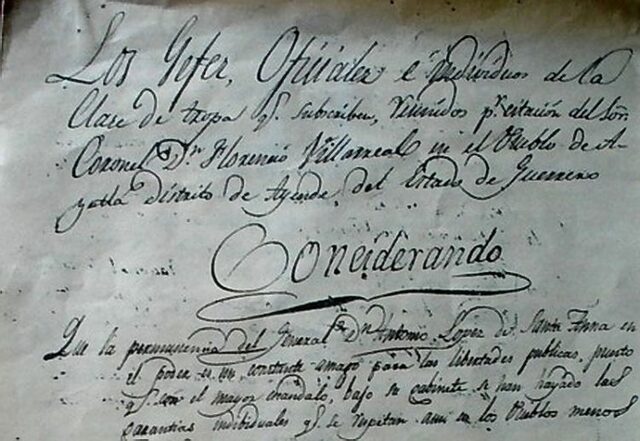 Los Gefes, Oficiales e Individuos de la
Clase de tropa q.e subscriben, reunidos p.r citación del Sor.
Coronel D.n Florencio Villarreal en el Pueblo de A-
yutla distrito de Ayende del Estado de Guerrero
Considerando
Que la permanencia del General D.n Antonio Lopez de Santa Anna en
el poder es un constante amago para las libertades publicas, puesto
q.e con el mayor escandalo, bajo su cabinete se han hayado las
garantias individuales q.e se respetan aun en los Pueblos menos